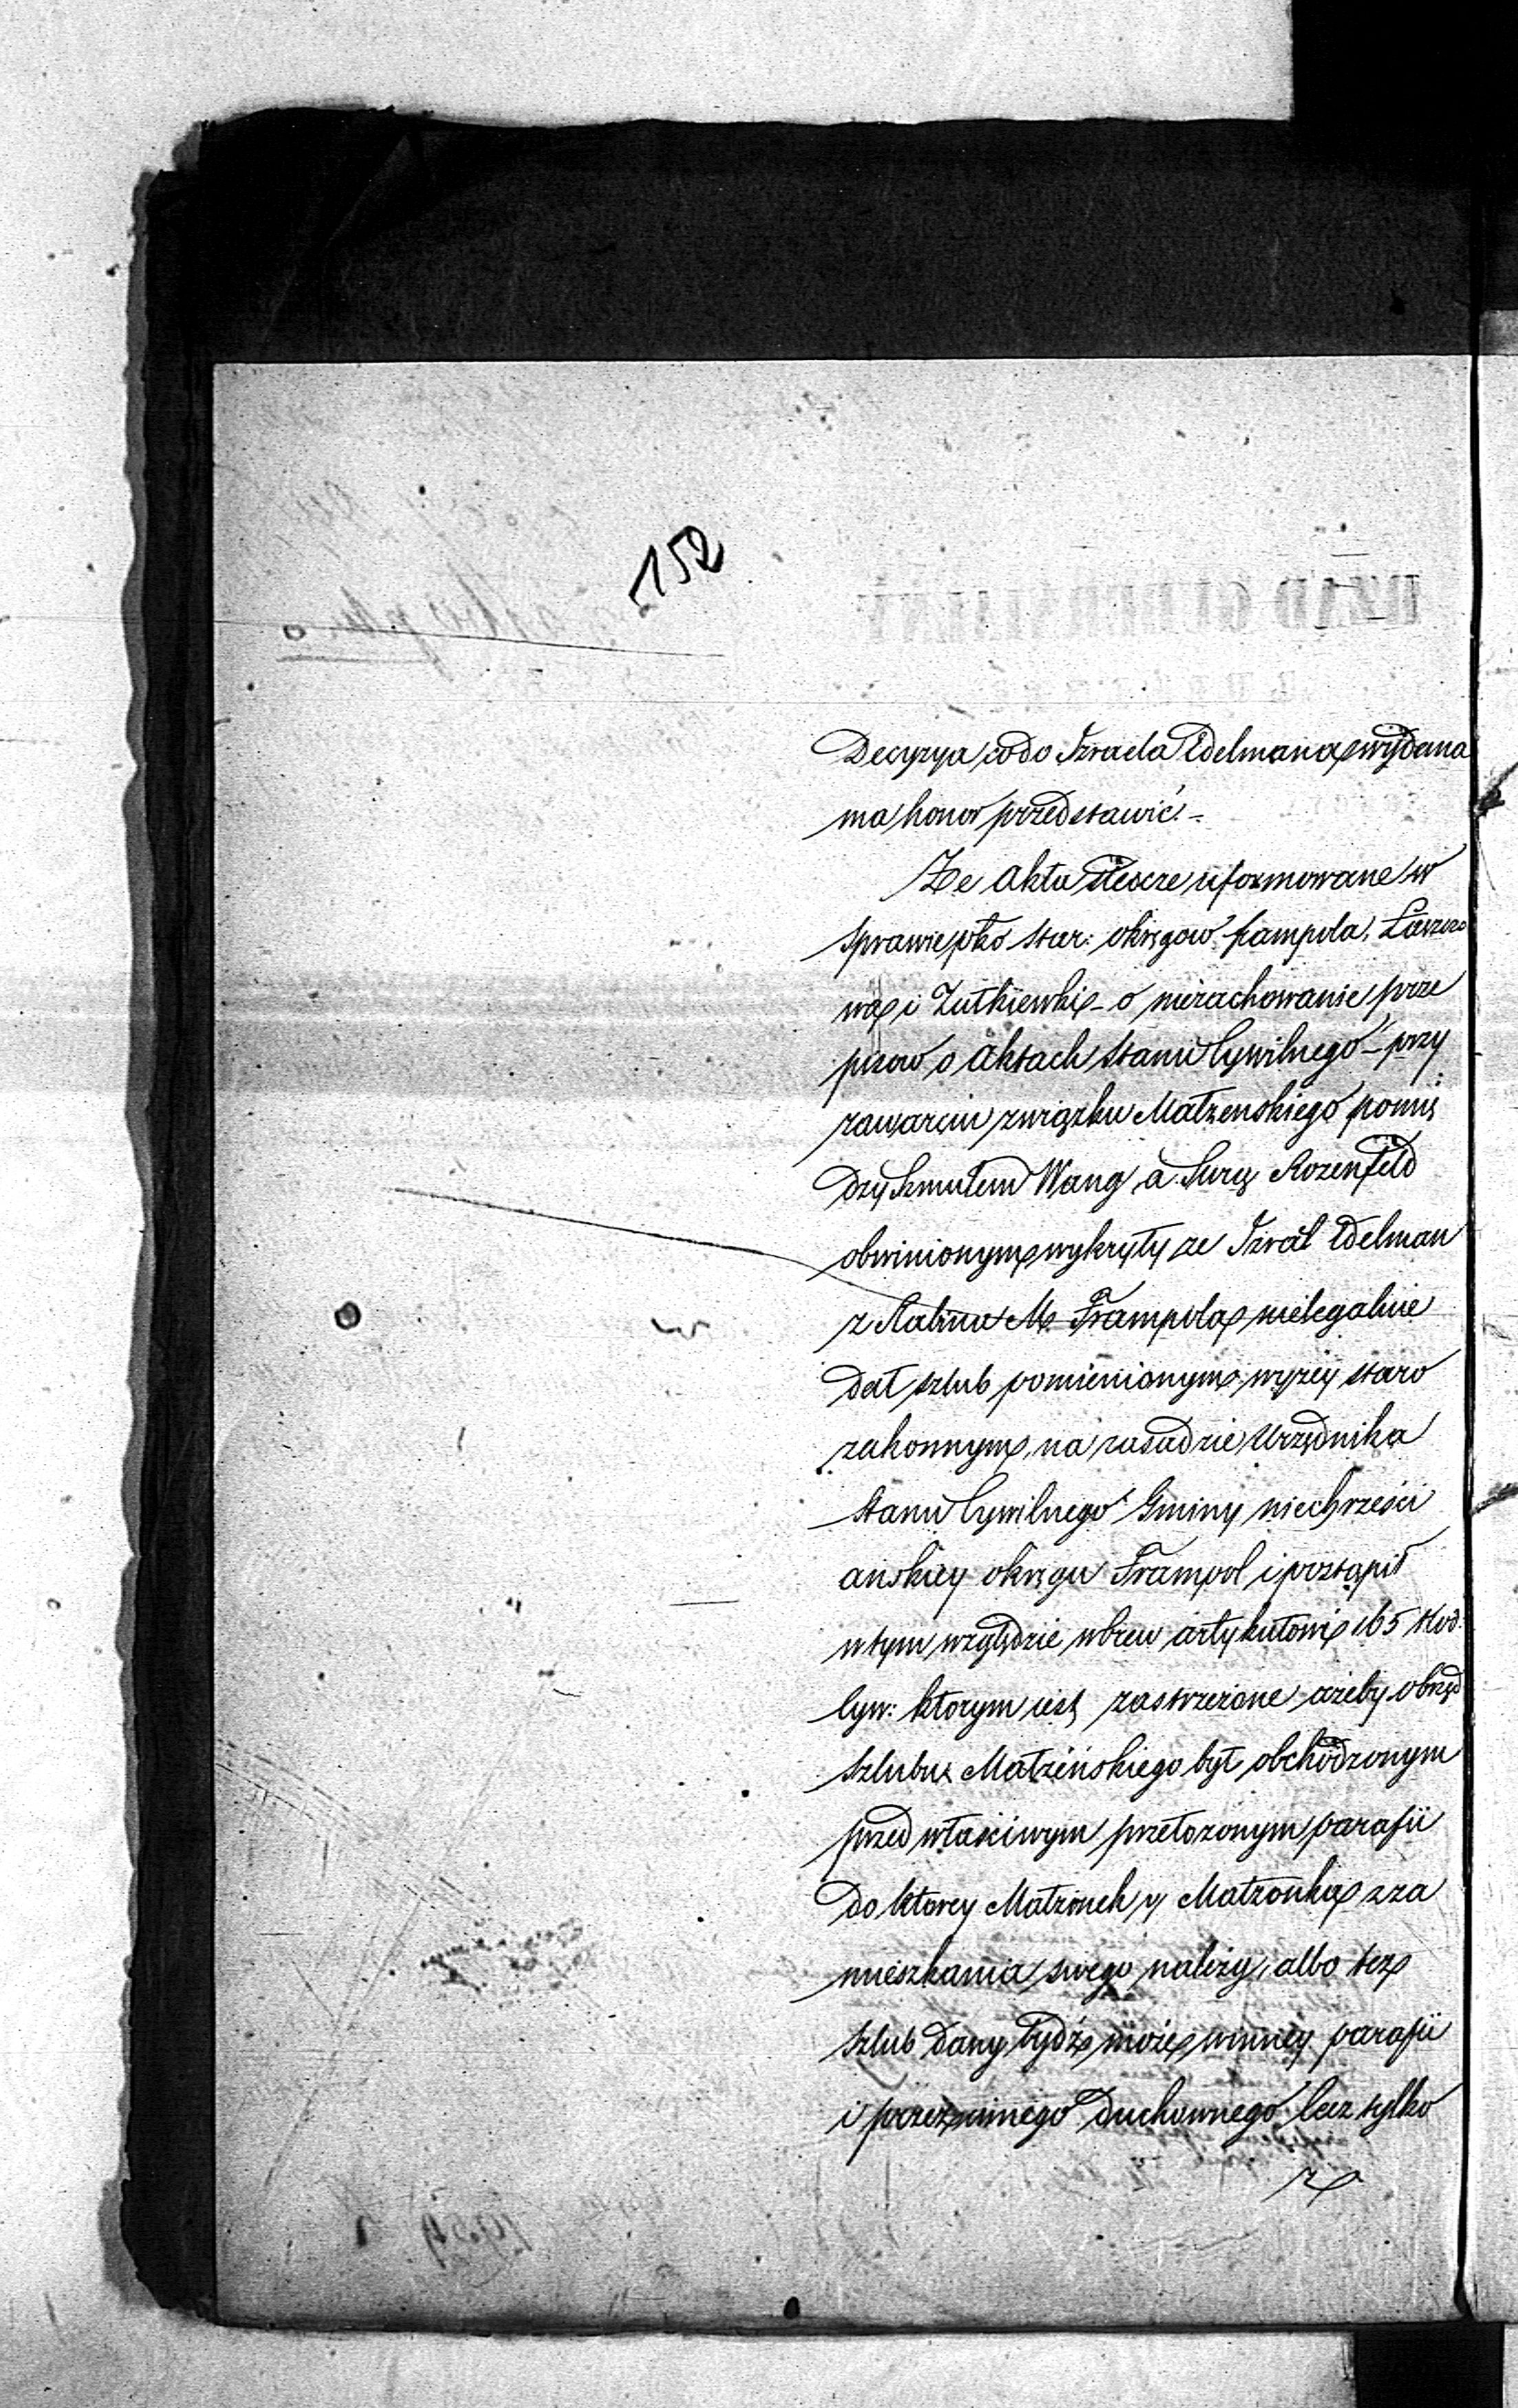 152
Decyzya co do Izraela Edelmana wydana
ma honor przedstawić. -
Ze Akta śledcze uformowane w
sprawie pko star: okręgow frampola, Łaszczo
wa i Zutkiewki - o niezachowanie prze
pisow o Aktach Stanu Cywilnego - przy
zawarciu związku Małzenskiego pomię
dzy Szmulem Wang a Surą Rozenfeld
obwinionym wykryły ze Izrael Edelman
z Rabina M. Frampola nielegalnie
dał szlub pomienionym wyzey staro
zakonnym, na zasadzie Urzędnika
Stanu Cywilnego Gminy niechrześci
anskiey okręgu Frampol i postąpił
wtym względzie wbrew artykułowi 165 Kod:
Cyw: ktorym iest zastrzeżone ażeby obrzęd
szlubu Małżeńskiego był obchodzonym
przed właściwym przełozonym parafii
do ktorey Małzonek y Małzonka z za
mieszkania swego należy, albo tez
szlub dany bydź może winney parafii
i przez innego Duchownego lecz tylko
z